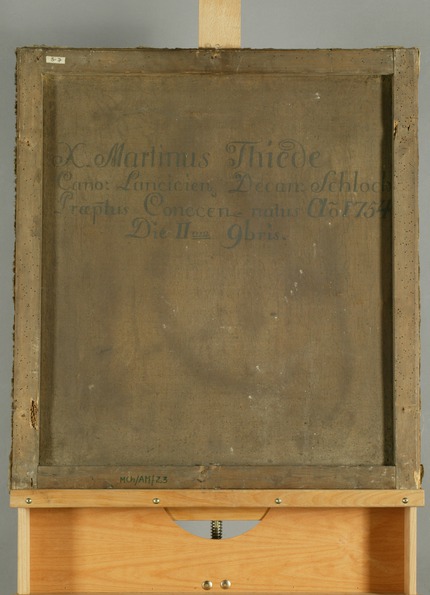 X. Martinus Thiede
Cano: Lancicien, Decan: Schloch
Præptus Conecen. natus Aõ 1754
Die IIma 9bris.
MCh/AH/2.3